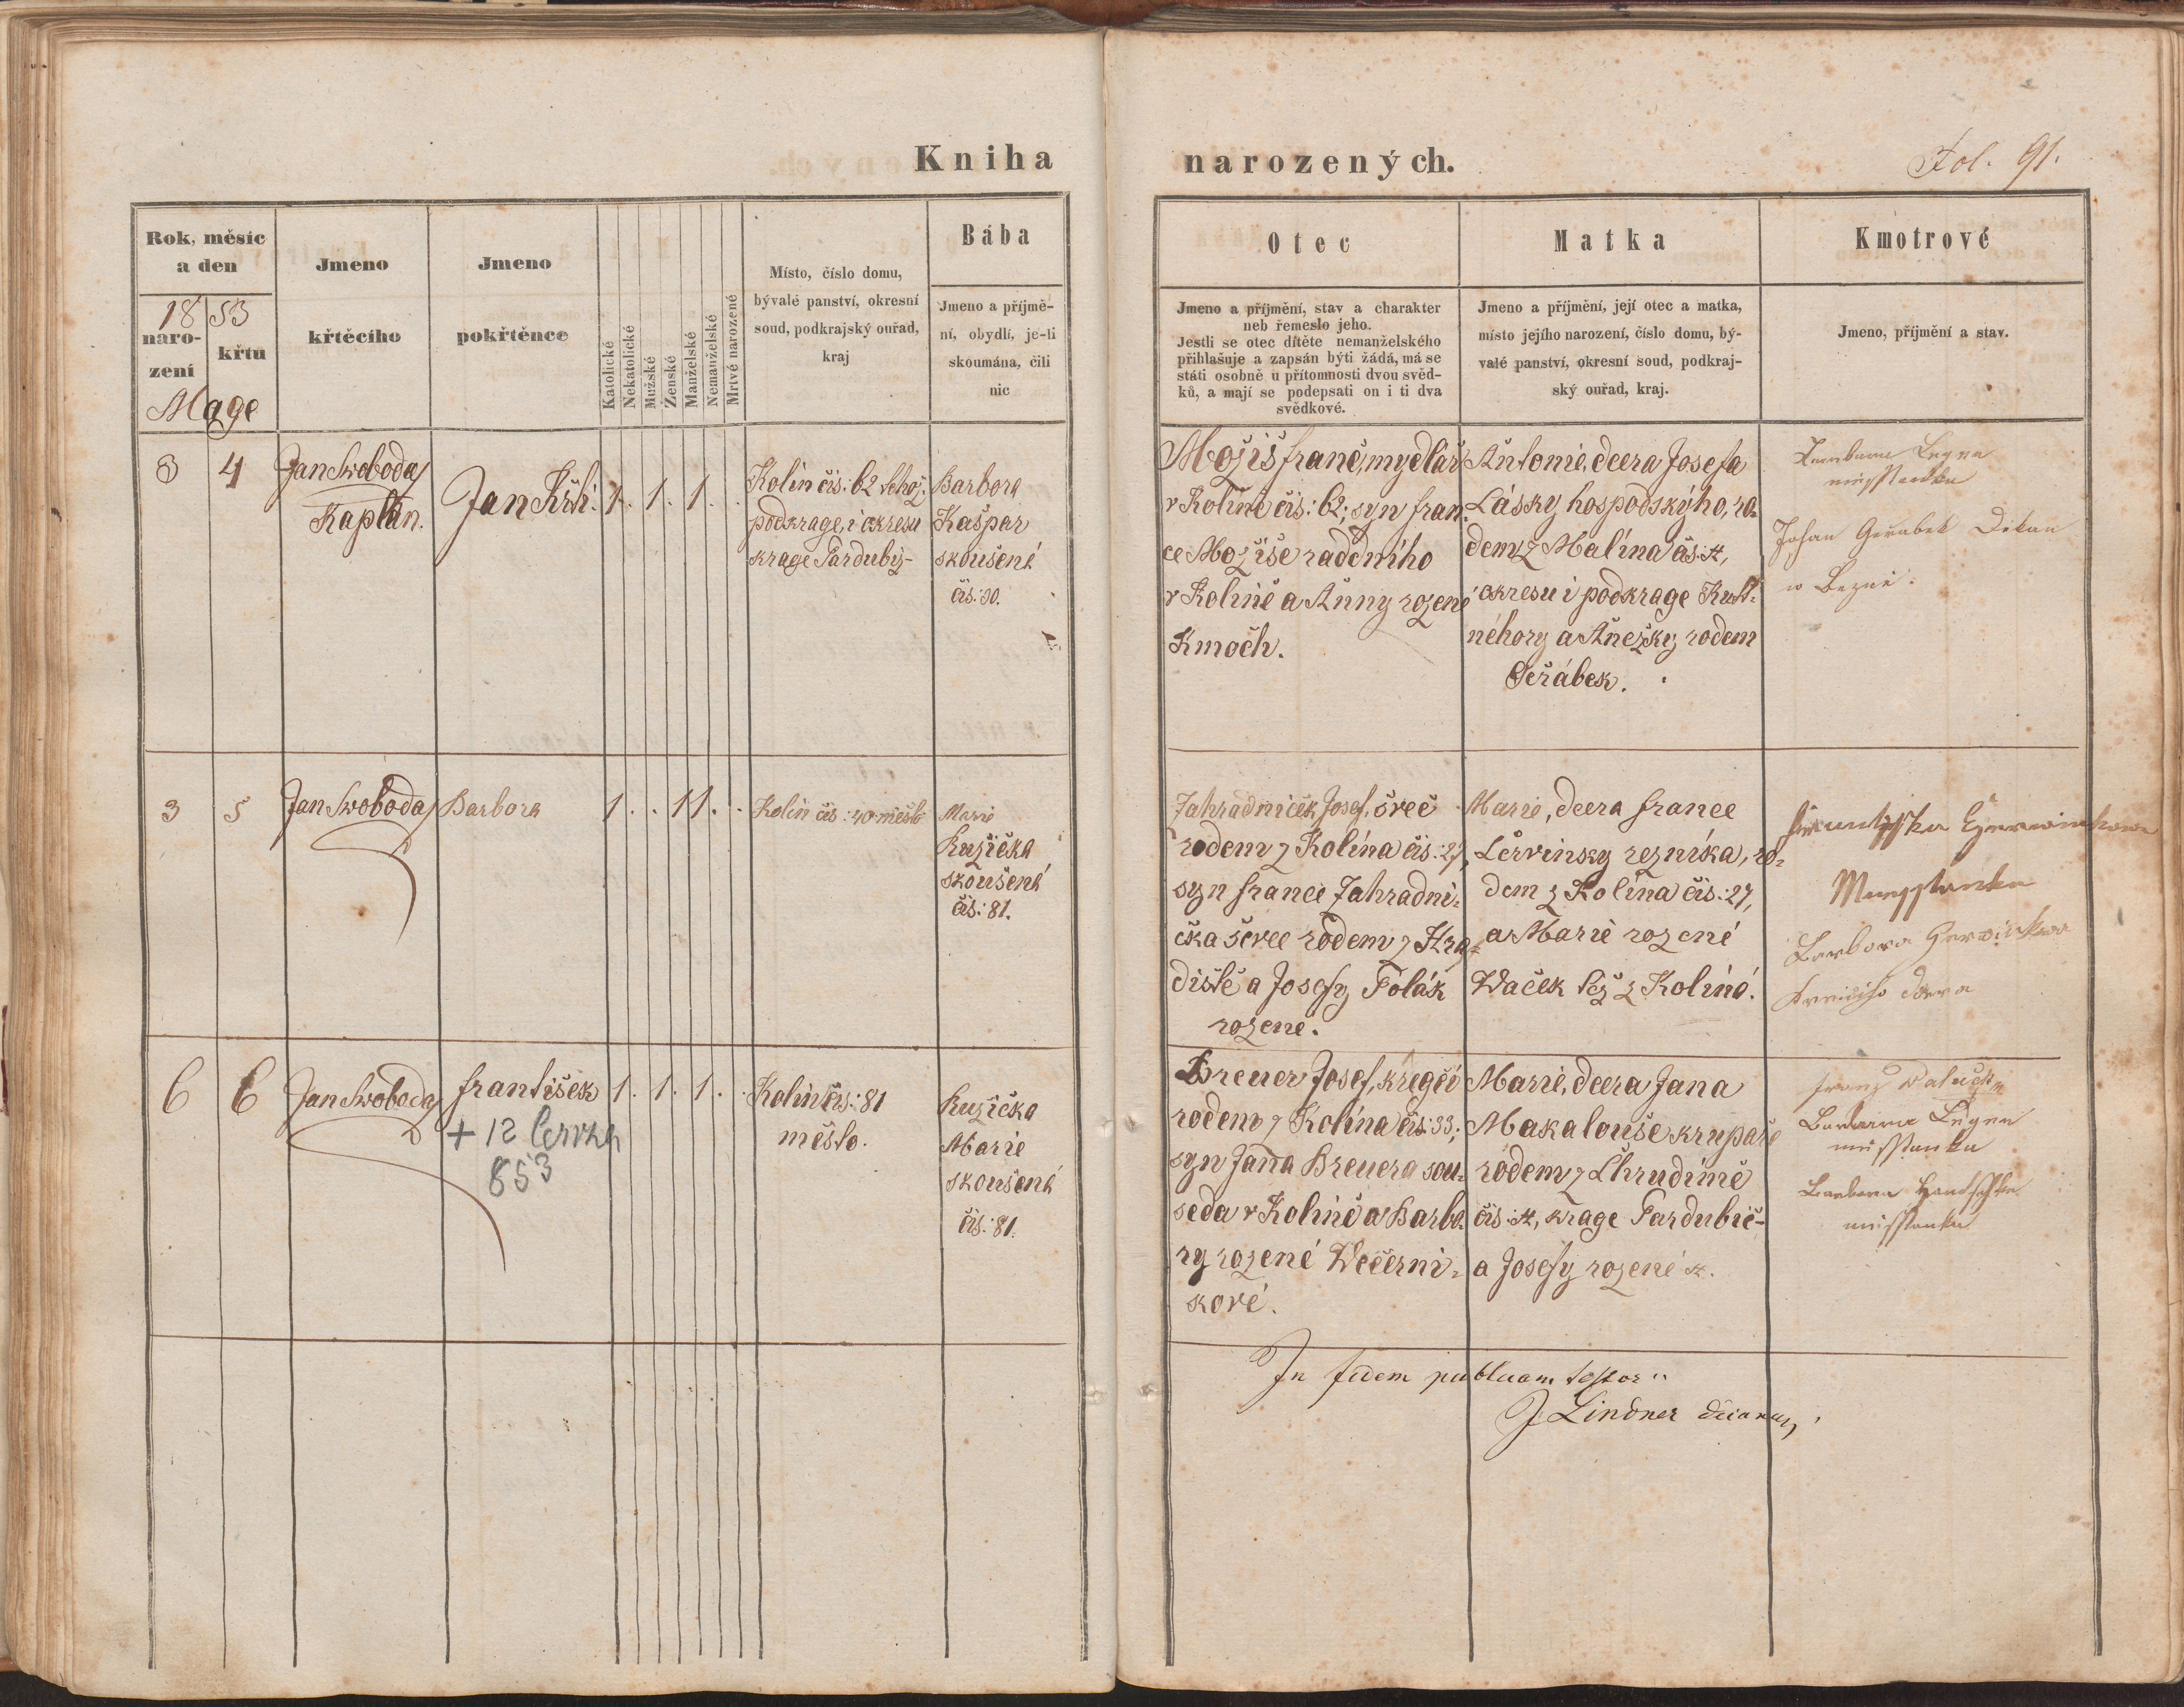 Kniha
narozených.
Fol. 91.
Rok, měsíc
a den
1853
naro-
zení
křtu
Mage
Jmeno
křtěcího
Jmeno
pokřtěnce
Katolické
Nekatolické
Mužské
Ženské
Manželské
Nemanželské
Mrtvě narozené
Místo, číslo domu,
bývalé panství, okresní
soud, podkrajský ouřad,
kraj
Bába
Jmeno a příjmě-
ní, obydlí, je-li
skoumána, čili
nic
Otec
Jmeno a příjmění, stav a charakter
neb řemeslo jeho.
Jestli se otec dítěte nemanželského
přihlašuje a zapsán býti žádá, má se
státi osobně u přítomnosti dvou svěd-
ků, a mají se podepsati on i ti dva
svědkové.
Matka
Jmeno a příjmění, její otec a matka,
místo jejího narození, číslo domu, bý-
valé panství, okresní soud, podkraj-
ský ouřad, kraj.
Kmotrové
Jmeno, příjmění a stav.
3 4
Jan Swoboda
Kaplan.
Jan Křti.
1. 1. 1.
Kolín čis: 62 tehož
podkrage, i okresu
krage Pardubiz-
Barbora
Kašpar
skoušená
čis: 30.
Mojžiš franc, mydlař
v Kolíně čis: 62; syn fran-
ce Mojžiše raddního
v Kolíně a Anny rozené
Kmoch.
Antonie, dcera Josefa
Lásky hospodskýho, ro-
dem z Malína čis: #,
okresu i podkrage Kutt-
néhory a Anežky, rodem
Geřábek.
Johan Gerabek Dekan
3 5
Jan Swoboda
Barbora
1. . 1 1. .
Kolin čis: 40 město
Marie
Ružička
skoušená
čis: 81.
Zahradníček Josef, švec
rodem z Kolína čis: 27,
syn france Zahradní-
čka ševce rodem z Hra-
diště a Josefy Polák
rozene.
Marie, dcera france
Červinsky rezníka, ro-
dem z Kolína čis: 27,
a Marie rozené
Waček též z Kolína.
Barbora
dcera
6 6
Jan Swoboda
františek
+ 12 Cervna
853
1. 1. 1. .
Kolin čis: 81
město.
Ružička
Marie
skoušená
čis: 81.
Breuer Josef, kregčí
rodem z Kolína čis: 33;
syn Jana Breuera sou-
seda v Kolíně a Barbo-
ry rozené Wečerní-
kové.
Marie, dcera Jana
Makalouše krupaře
rodem z Chrudimě
čis: #, krage Pardubic-
a Josefy rozené #.
In fidem publicam testor
J Lindner decanus